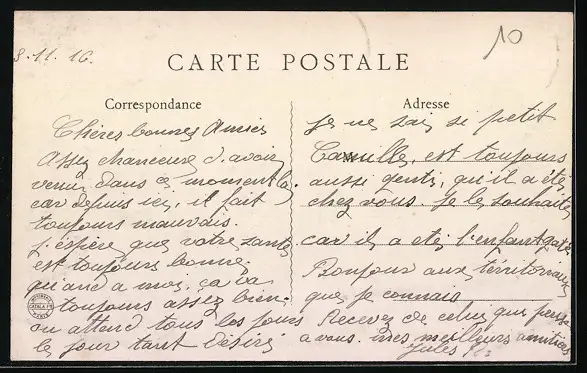 8.11.16.
10
CARTE POSTALE
Correspondance
Chères bonnes Amies
Assez chanceuse d'avoir
venu dans ce moment là
car depuis ici, il fait
toujours mauvais.
J'espière que votre santé
est toujours bonne.
quand a moi, ça va
toujours assez bien.
on attend tous les jours
le jour tant désiré
Adresse
Je ne sai, si petit
Camille, est toujours
aussi genti, qu'il a été
chez vous. Je le souhaite
car il a eté l'enfant gaté
Bonjour aux térritoriaux
que je connais
Recevez de celui qui pense
a vous. mes meilleurs amitiés
Jules